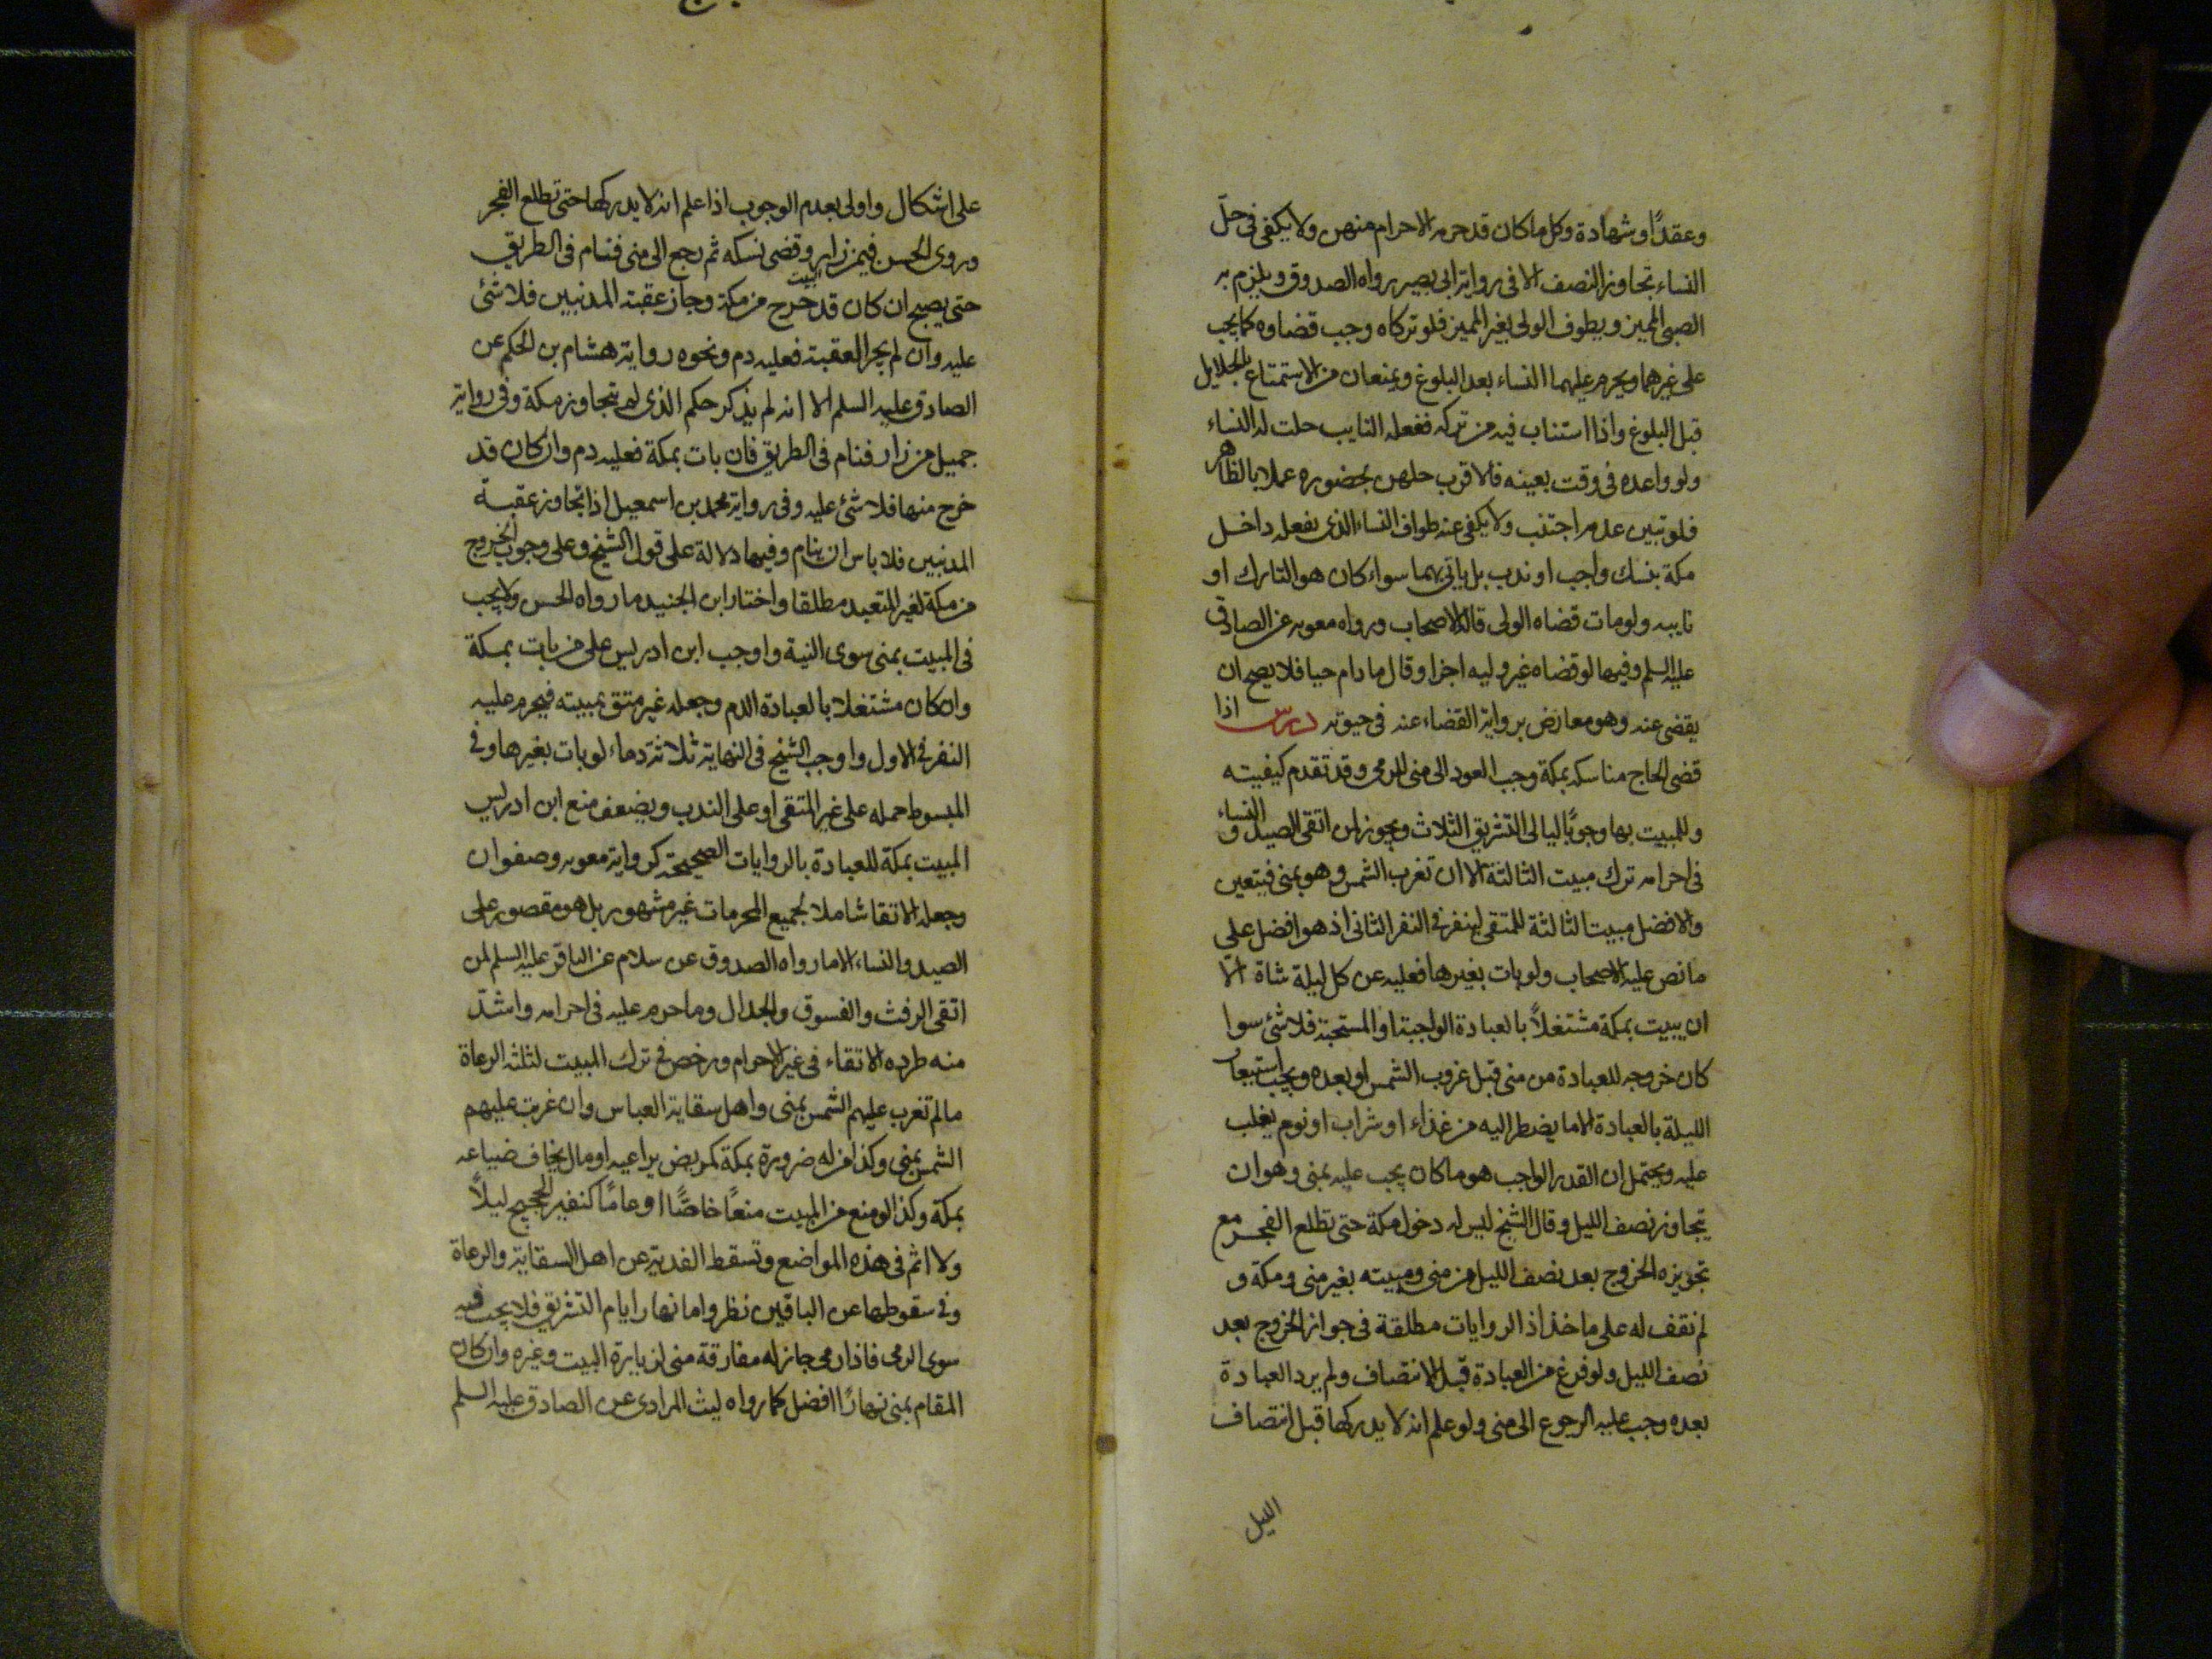 وعقدًا وشهادة وكل ما كان قد حرمه الاحرام منهن ولا يكفى فى حلّ
النساء تجاوز النصف الا فى رواية ابى بصير رواه الصدوق ويلزم به
الصبى المميز ويطوف الولى بغير المميز فلو تركاه وجب قضاوه كما يجب
على غيرهما ويحرم عليهما النساء بعد البلوغ ويمنعان من الاستمتاع بالحلايل
قبل البلوغ واذا استناب فيه من تركه ففعله النايب حلت له النساء
ولو واعده فى وقت بعينه فالاقرب حلهن بحضوره عملا بالظاهر
فلو تبين عدمه اجتنب ولا يكفى عنه طواف النساء الذى يفعله داخل
مكة بنسك واجب او ندب بل ياتى بهما سواء كان هو التارك او
نايبه ولو مات قضاه الولى قاله الاصحاب ورواه معويه عن الصادق
عليه السلم وفيها لو قضاه غير وليه اجزا وقال ما دام حيا فلا يصح ان
يقضى عنه وهو معارض برواية القضاء عنه فى حيوته درس اذا
قضى الحاج مناسكه بمكة وجب العود الى منى للرمى وقد تقدم كيفيته
وللمبيت بها وجوبًا ليالى التشريق الثلاث ويجوز لمن اتقى الصيد والنساء
فى احرامه ترك مبيت الثالثة الا ان تغرب الشمس وهو بمنى فيتعين
والافضل مبيت الثالثة للمتقى لينفر فى النفر الثانى اذ هو افضل على
ما نص عليه الاصحاب ولو بات بغيرها فعليه عن كل ليلة شاة الا
ان يبيت بمكة مشتغلًا بالعبادة الواجبة او المستحبة فلا شئ سوا
كان خروجه للعبادة من منى قبل غروب الشمس او بعده ويجب استيعاب
الليلة بالعبادة الا ما يضطر اليه من غذاء او شراب او نوم يغلب
عليه ويحتمل ان القدر الواجب هو ما كان يجب عليه بمنى وهو ان
يتجاوز نصف الليل وقال الشيخ ليس له دخول مكة حتى تطلع الفجر مع
تجويزه الخروج بعد نصف الليل من منى ومبيته بغير منى ومكة و
لم نقف له على ماخذ اذ الروايات مطلقة فى جواز الخروج بعد
نصف الليل ولو فرغ من العبادة قبل الانتصاف ولم يرد العبادة
بعده وجب عليه الرجوع الى منى ولو علم انه لا يدركها قبل انتصاف
الليل
على اشكال واولى بعدم الوجوب اذا علم انه لا يدركها حتى تطلع الفجر
وروى الحسن فيمن زار وقضى نسكه ثم رجع الى منى فنام فى الطريق
حتى يصبح ان كان قد خرج من مكة وجاز عقبة المدنيين فلا شئ
عليه وان لم يجز العقبة فعليه دم ونحوه رواية هشام بن الحكم عن
الصادق عليه السلم الا انه لم يذكر حكم الذى لم يتجاوز مكة وفى رواية
جميل من زار فنام فى الطريق فان بات بمكة فعليه دم وان كان قد
خرج منها فلا شئ عليه وفى رواية محمد بن اسمعيل اذا تجاوز عقبة
المدنيين فلا باس ان ينام وفيها دلالة على قول الشيخ وعلى وجوب الخروج
من مكة لغير المتعبد مطلقا واختار ابن الجنيد ما رواه الحسن ولا يجب
فى المبيت بمنى سوى النية واوجب ابن ادريس على من بات بمكة
وان كان مشتغلا بالعبادة الدم وجعله غير متق بمبيته فيحرم عليه
النفر فى الاول واوجب الشيخ فى النهاية ثلاثة دماء لو بات بغيرها وفى
المبسوط حمله على غير المتقى او على الندب ويضعف منع ابن ادريس
المبيت بمكة للعبادة بالروايات الصحيحة كرواية معويه وصفوان
وجعله الاتقا شاملا لجميع المحرمات غير مشهور بل هو مقصور على
الصيد والنساء الا ما رواه الصدوق عن سلام عن الباقر عليه السلم لمن
اتقى الرفث والفسوق والجدال وما حرم عليه فى احرامه واشدّ
منه طرده الاتقاء فى غير الاحرام ورخص فى ترك المبيت لثلثه الرعاة
مالم تغرب عليهم الشمس بمنى واهل سقاية العباس وان غربت عليهم
الشمس بمنى وكذا من له ضرورة بمكة كمريض يراعيه او مال يخاف ضياعه
بمكة وكذا لو منع من المبيت منعًا خاصًّا او عامًا كنفير الحجيج ليلًا
ولا اثم فى هذه المواضع وتسقط الفدية عن اهل السقاية والرعاة
وفى سقوطها عن الباقين نظر واما نهار ايام التشريق فلا يجب فيه
سوى الرمى فاذا رمى جاز له مفارقة منى لزيارة البيت وغيره وان كان
المقام بمنى نهارًا افضل كما رواه ليث المرادى عن الصادق عليه السلم